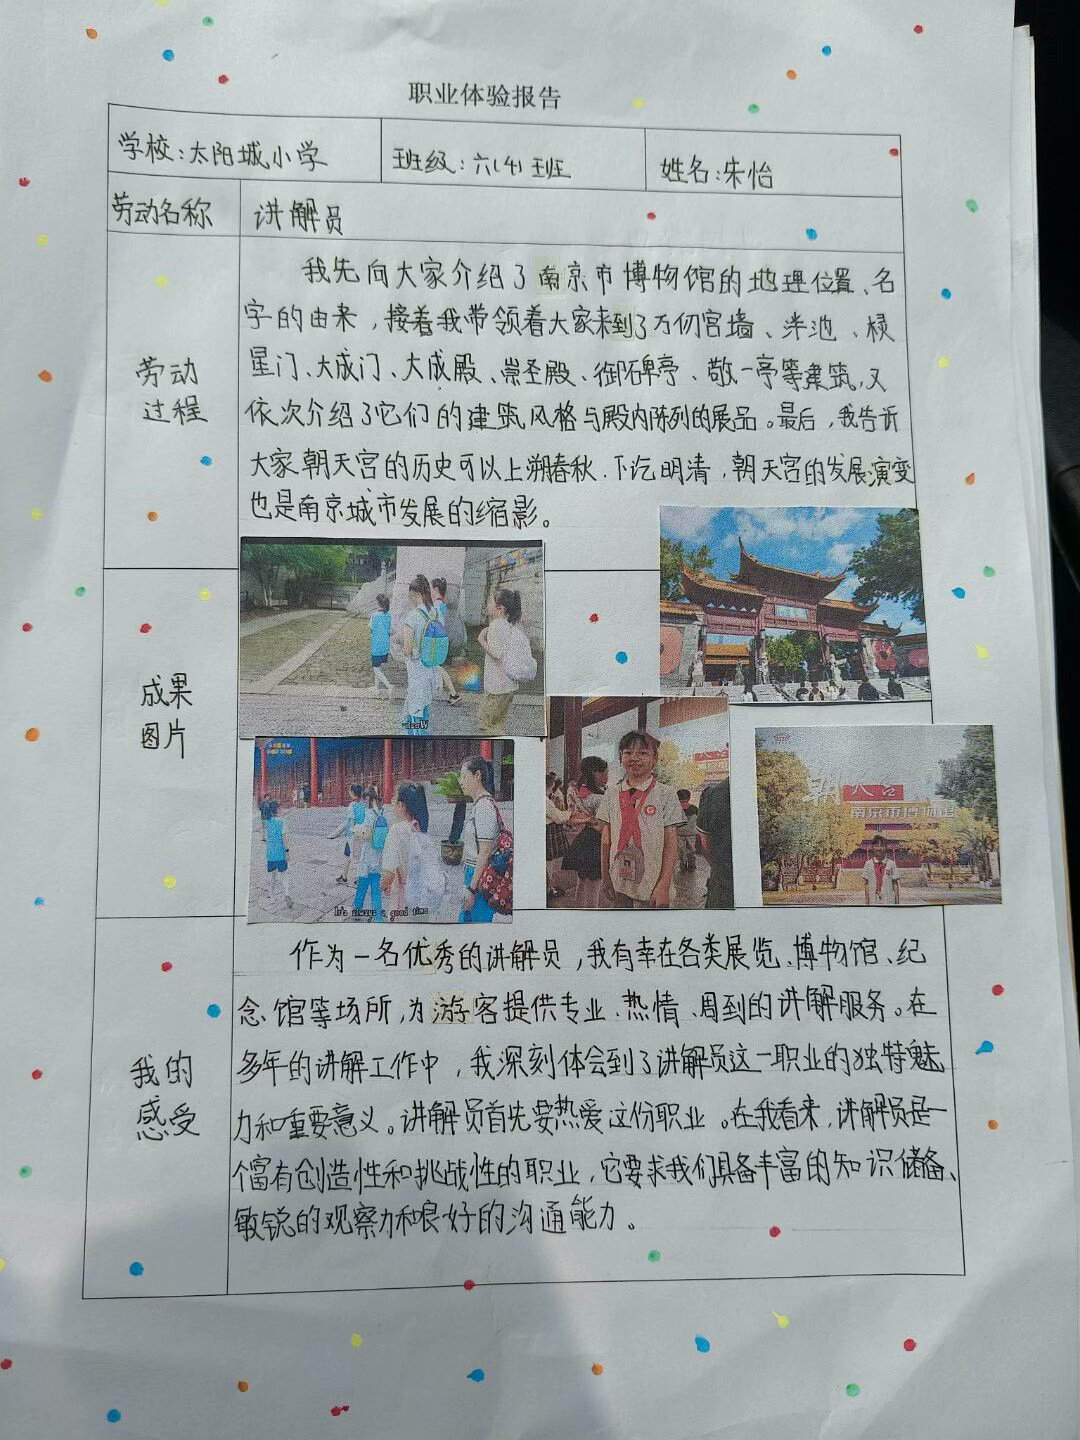 职业体验报告
学校:太阳城小学 班级:六(4)班 姓名:朱怡
劳动名称 讲解员
劳动过程
我先向大家介绍了南京市博物馆的地理位置、名
字的由来,接着我带领着大家来到了万仞宫墙、泮池、棂
星门、大成门、大成殿、崇圣殿、御碑亭、敬一亭等建筑,又
依次介绍了它们的建筑风格与殿内陈列的展品。最后,我告诉
大家朝天宫的历史可以上溯春秋,下讫明清,朝天宫的发展演变
也是南京城市发展的缩影。
成果图片
It's always a good time
朝天宫
南京市博物馆
我的感受
作为一名优秀的讲解员,我有幸在各类展览、博物馆、纪
念馆等场所,为游客提供专业、热情、周到的讲解服务。在
多年的讲解工作中,我深刻体会到了讲解员这一职业的独特魅
力和重要意义。讲解员首先要热爱这份职业。在我看来,讲解员是一
个富有创造性和挑战性的职业,它要求我们具备丰富的知识储备、
敏锐的观察力和良好的沟通能力。